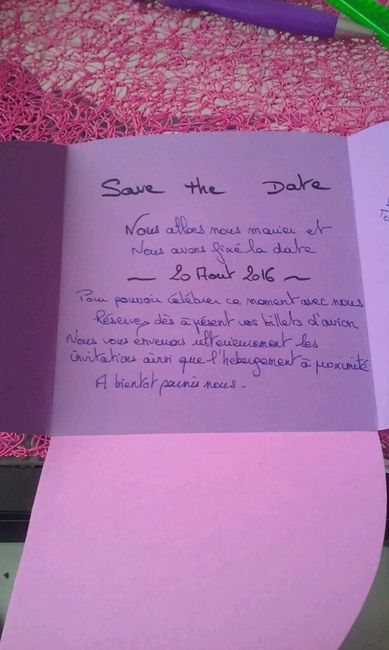 Save the Date
Nous allons nous marier et
Nous avons fixé la date
~ 20 Aout 2016 ~
Pour pouvoir célébrer ce moment avec nous
Réservez dès à présent vos billets d'avion
Nous vous enverrons ultérieurement les
invitations ainsi que l'hébergement à proximité
A bientôt parmis nous.